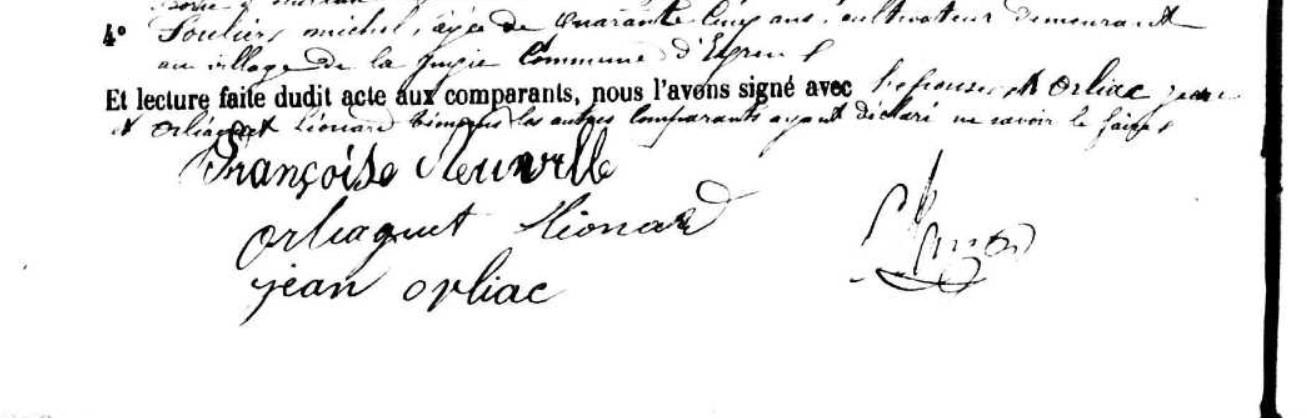 4° Souliers michel, âgé de quarante cinq ans, cultivateur demeurant
au village de la Jugie Commune d'Eyren
Et lecture faite dudit acte aux comparants, nous l'avons signé avec l'épouse, et Orliac jean
et Orliaguet Léonard témoins les autres comparants ayant déclaré ne savoir le faire
Françoise Neuville
orliaguet Léonard
jean orliac